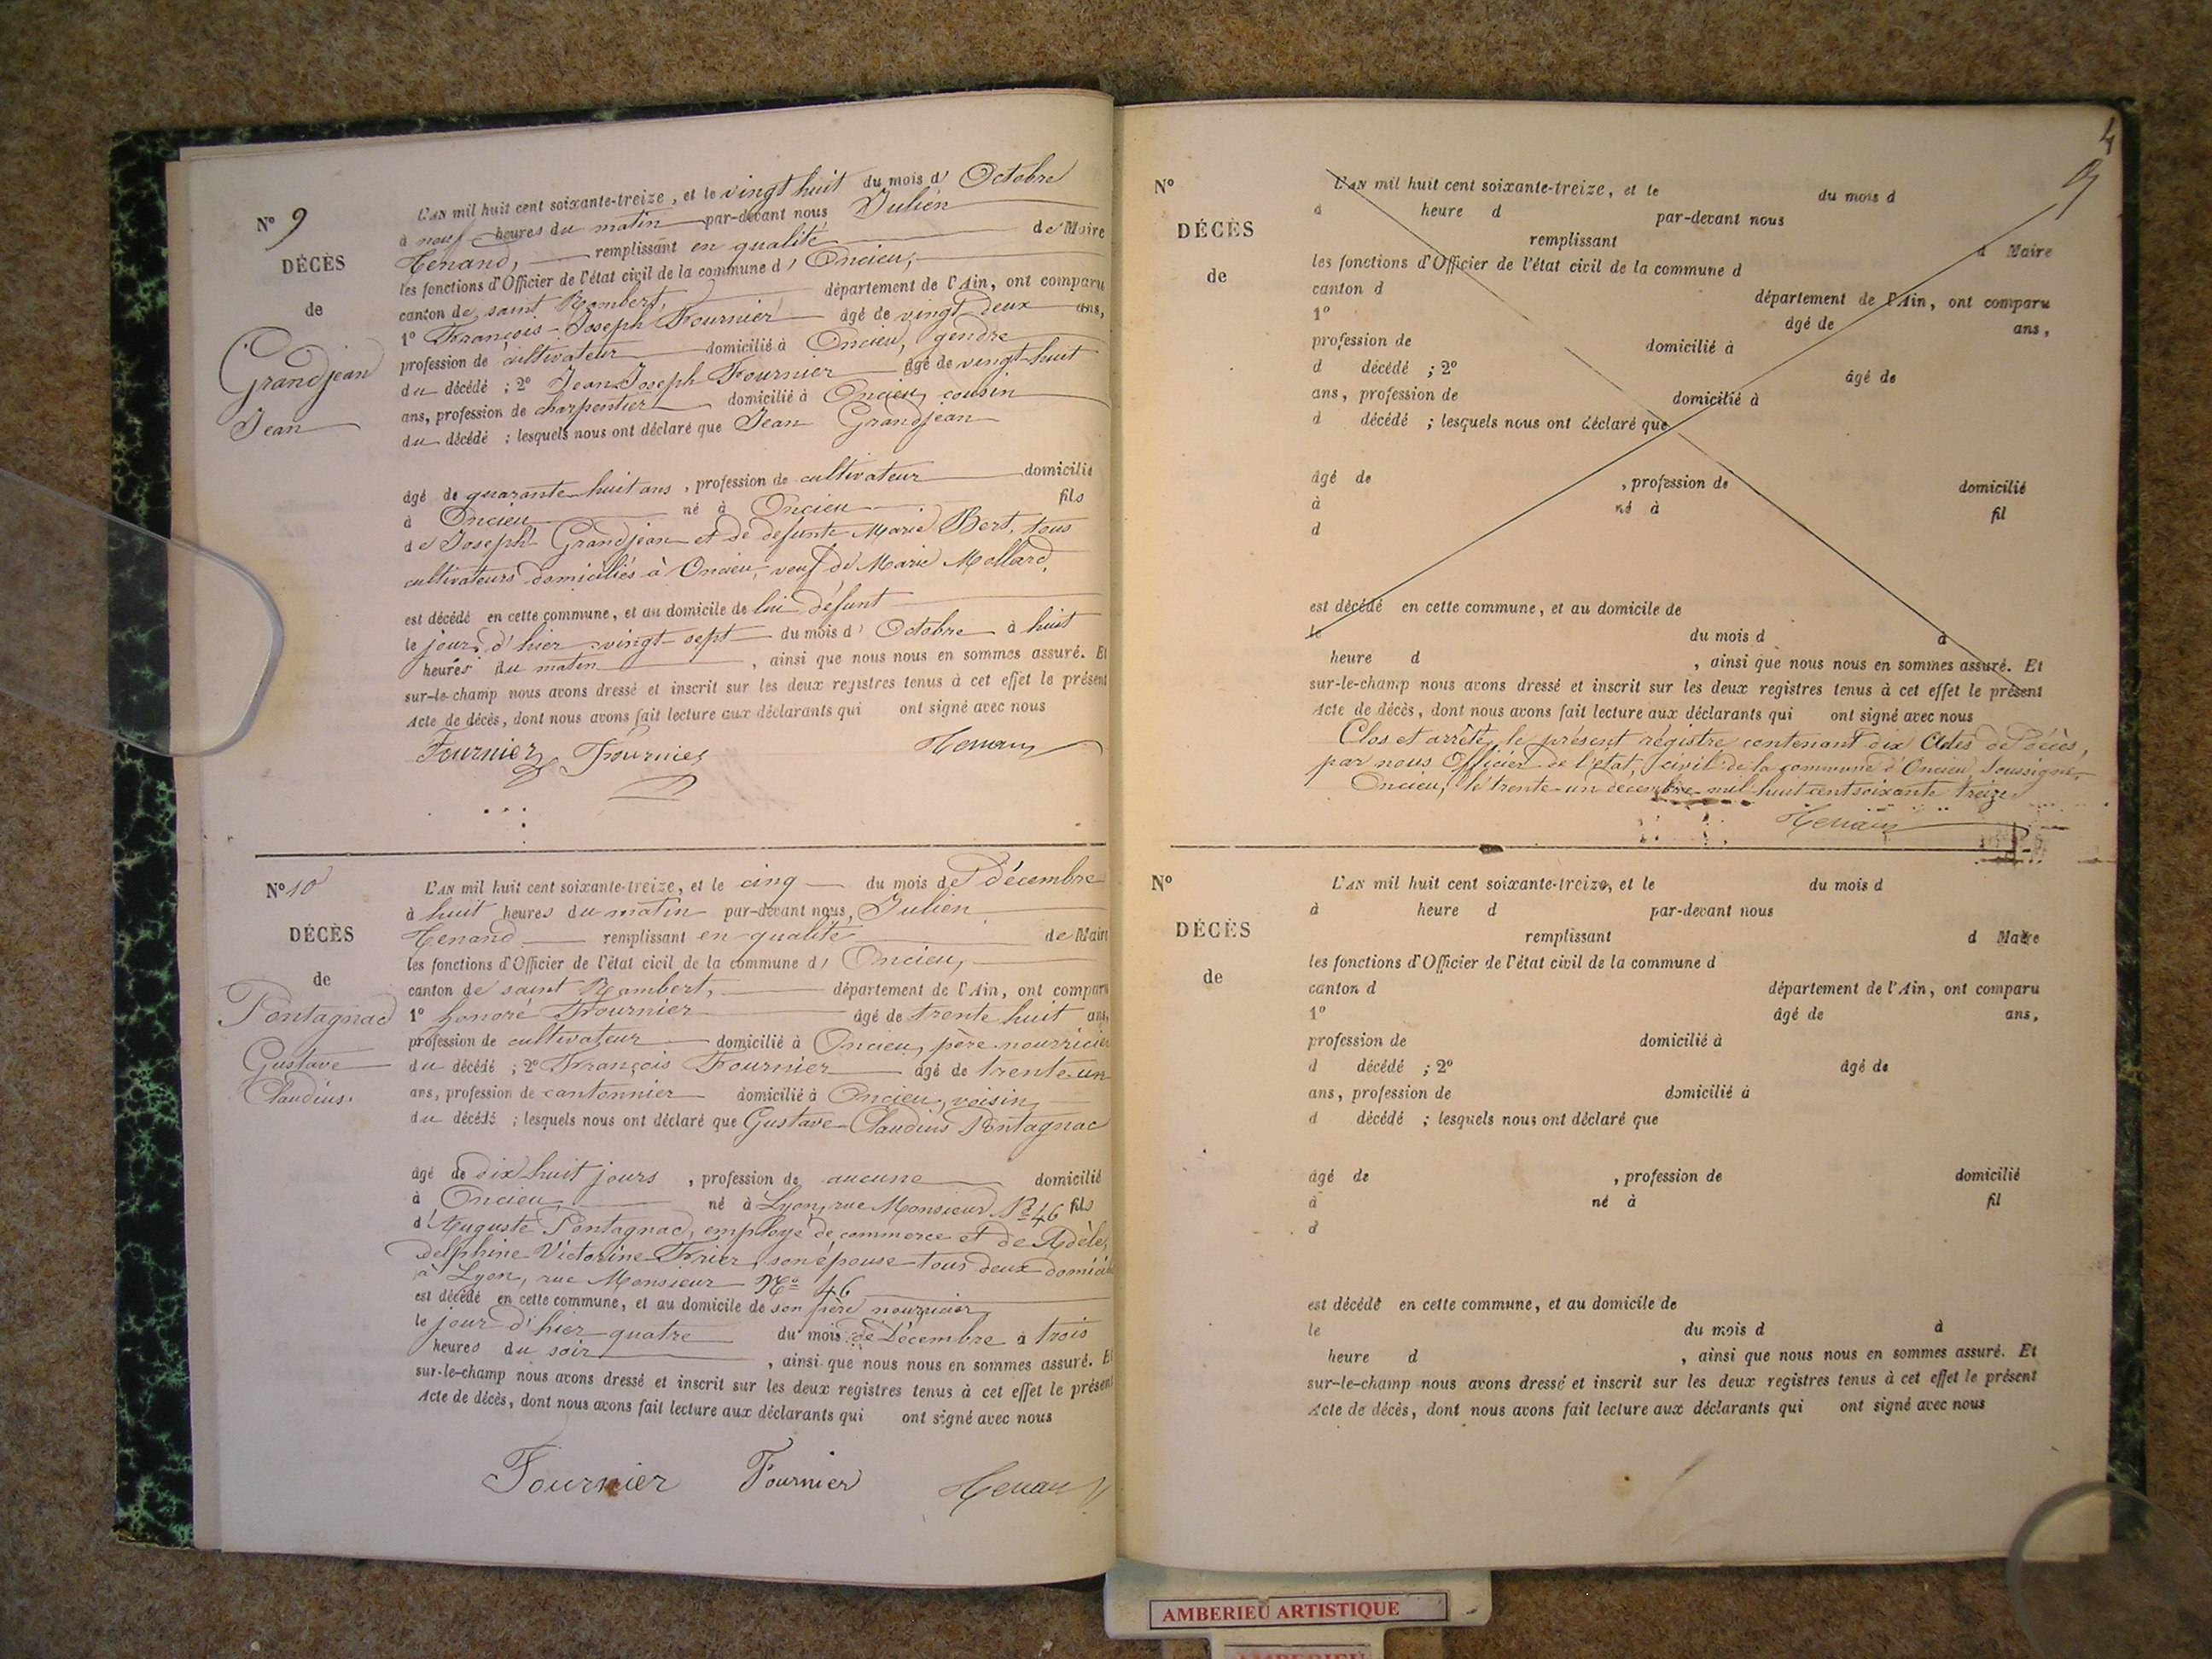 Nº 9
DÉCÈS
de
Grandjean
Jean
L'AN mil huit cent soixante-treize, et le vingt huit du mois d' Octobre
à neuf heures du matin par-devant nous Julien
Tenand, remplissant en qualité de Maire
les fonctions d'Officier de l'état civil de la commune d' Oncieu,
canton de saint Rambert, département de l'Ain, ont comparu
1º François-Joseph Fournier âgé de vingt deux ans,
profession de cultivateur domicilié à Oncieu, gendre
du décédé ; 2º Jean-Joseph Fournier âgé de vingt-huit
ans, profession de charpentier domicilié à Oncieu, cousin
du décédé ; lesquels nous ont déclaré que Jean Grandjean
âgé de quarante-huit ans, profession de cultivateur domicilié
à Oncieu né à Oncieu fils
de Joseph Grandjean et de defunte Marie Bert, tous
cultivateurs domiciliés à Oncieu, veuf de Marie Mollard,
est décédé en cette commune, et au domicile de lui défunt
le jour d'hier vingt-sept du mois d' Octobre à huit
heures du matin, ainsi que nous nous en sommes assuré. Et
sur-le-champ nous avons dressé et inscrit sur les deux registres tenus à cet effet le présent
Acte de décès, dont nous avons fait lecture aux déclarants qui ont signé avec nous
Fournier Fournier Tenand
Nº 10
DÉCÈS
de
Pontagnac
Gustave
Claudius.
L'AN mil huit cent soixante-treize, et le cinq du mois de Décembre
à huit heures du matin par-devant nous, Julien
Tenand remplissant en qualité de Maire
les fonctions d'Officier de l'état civil de la commune d' Oncieu,
canton de saint Rambert, département de l'Ain, ont comparu
1º honoré Fournier âgé de trente huit ans,
profession de cultivateur domicilié à Oncieu, père nourricier
du décédé ; 2º François Fournier âgé de trente-un
ans, profession de cantonnier domicilié à Oncieu, voisin
du décédé ; lesquels nous ont déclaré que Gustave-Claudius Pontagnac
âgé de dix huit jours, profession de aucune domicilié
à Oncieu né à Lyon, rue Monsieur Nº 46 fils
d'Auguste Pontagnac, employé de commerce et de Adèle,
Delphine Victorine Frier, son épouse tous deux domicil
à Lyon, rue Monsieur Nº 46
est décédé en cette commune, et au domicile de son père nourricier
le jour d'hier quatre du mois de Décembre à trois
heures du soir, ainsi que nous nous en sommes assuré. Et
sur-le-champ nous avons dressé et inscrit sur les deux registres tenus à cet effet le présent
Acte de décès, dont nous avons fait lecture aux déclarants qui ont signé avec nous
Fournier Fournier Tenand
4
Nº
DÉCÈS
de
L'AN mil huit cent soixante-treize, et le du mois d
à heure d par-devant nous
remplissant d Maire
les fonctions d'Officier de l'état civil de la commune d
canton d département de l'Ain, ont comparu
1º âgé de ans,
profession de domicilié à
d décédé ; 2º âgé de
ans, profession de domicilié à
d décédé ; lesquels nous ont déclaré que
âgé de , profession de domicilié
à né à fil
d
est décédé en cette commune, et au domicile de
le du mois d à
heure d , ainsi que nous nous en sommes assuré. Et
sur-le-champ nous avons dressé et inscrit sur les deux registres tenus à cet effet le présent
Acte de décès, dont nous avons fait lecture aux déclarants qui ont signé avec nous
Clos et arrêté, le présent régistre contenant dix Actes de Décès,
par nous Officier de l'état civil de la commune d'Oncieu, Soussigné,
Oncieu, le trente-un décembre mil huit cent soixante treize
Tenand
Nº
DÉCÈS
de
L'AN mil huit cent soixante-treize, et le du mois d
à heure d par-devant nous
remplissant d Maire
les fonctions d'Officier de l'état civil de la commune d
canton d département de l'Ain, ont comparu
1º âgé de ans,
profession de domicilié à
d décédé ; 2º âgé de
ans, profession de domicilié à
d décédé ; lesquels nous ont déclaré que
âgé de , profession de domicilié
à né à fil
d
est décédé en cette commune, et au domicile de
le du mois d à
heure d , ainsi que nous nous en sommes assuré. Et
sur-le-champ nous avons dressé et inscrit sur les deux registres tenus à cet effet le présent
Acte de décès, dont nous avons fait lecture aux déclarants qui ont signé avec nous
AMBERIEU ARTISTIQUE
AMBERIEU